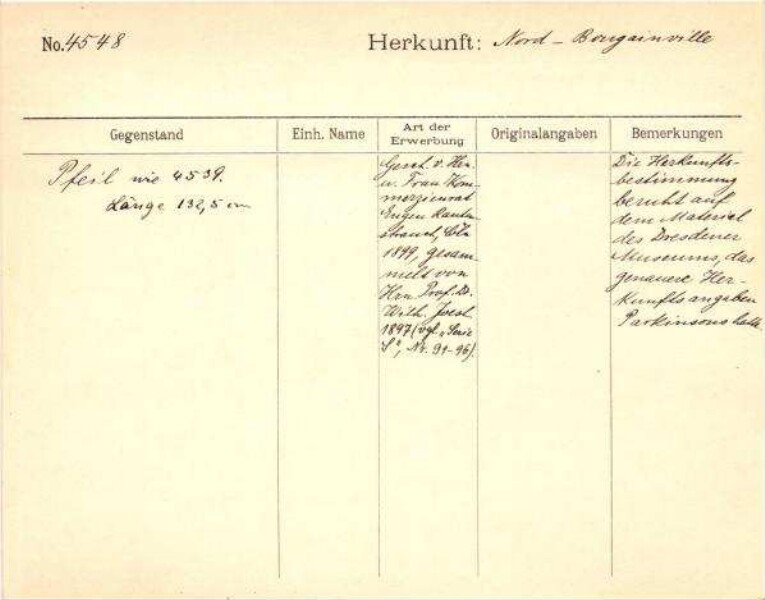 No. 4548
Herkunft: Nord - Bougainville
Gegenstand
Einh. Name
Art der
Erwerbung
Originalangaben
Bemerkungen
Pfeil wie 4539.
Länge 132,5 cm
Gesch. v. Hrn.
u. Frau Kom-
merzienrat
Eugen Rauten-
strauch, Cöln
1899, gesam-
melt von
Hrn. Prof. Dr.
Wilh. Joest
1897 (vgl. „Serie
S", Nr. 91-96).
Die Herkunfts-
bestimmung
beruht auf
dem Material
des Dresdener
Museums, das
genauere Her-
kunftsangaben
Parkinsons hatte.